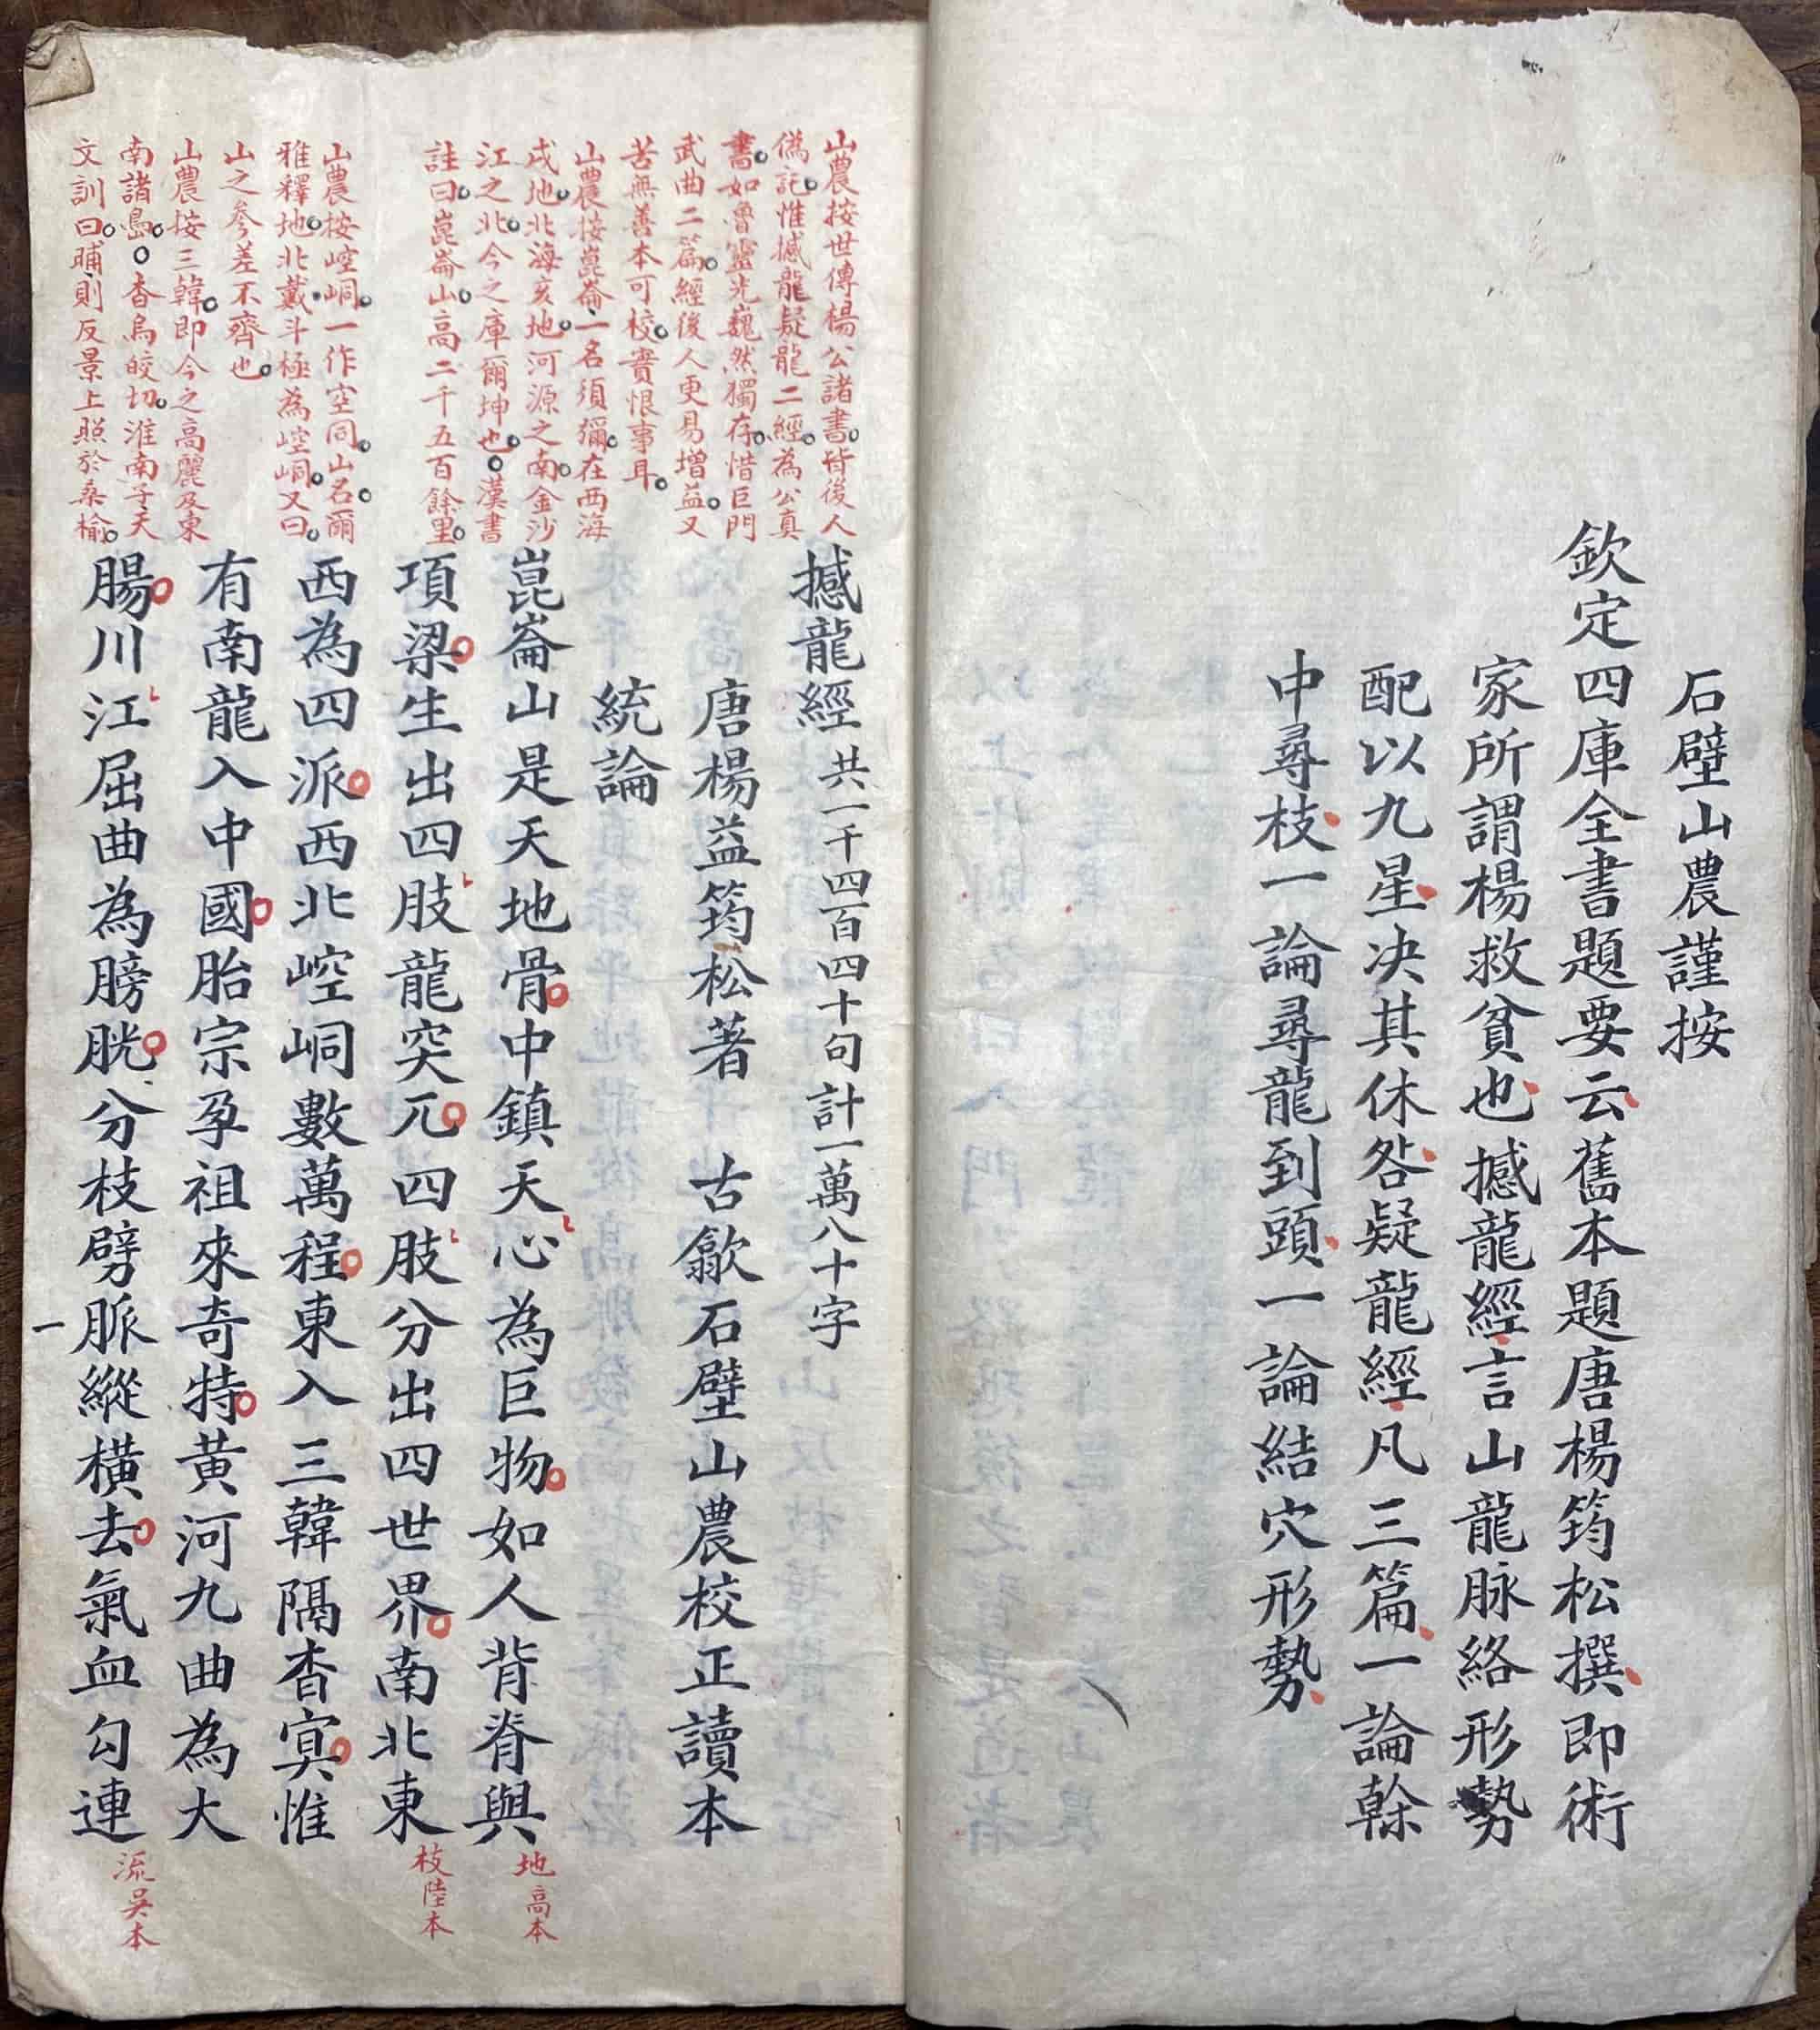 石壁山農謹按
欽定四庫全書題要云舊本題唐楊筠松撰即術
家所謂楊救貧也撼龍經言山龍脉絡形勢
配以九星决其休咎疑龍經凡三篇一論榦
中尋枝一論尋龍到頭一論結穴形勢
山農按世傳楊公諸書皆後人
僞託惟撼龍疑龍二經為公真
書如魯靈光巍然獨存惜巨門
武曲二篇經後人更易增益又
苦無善本可校實恨事耳
山農按崑崙一名須彌在西海
戌地北海亥地河源之南金沙
江之北今之庫爾坤也漢書
註曰崑崙山高二千五百餘里
山農按崆峒一作空同山名爾
雅釋地北戴斗極為崆峒又曰
山之參差不齊也
山農按三韓即今之高麗及東
南諸島杳烏皎切淮南子天
文訓曰晡則反景上照於桑榆
撼龍經 共一千四百四十句計一萬八十字
唐楊益筠松著 古歙石壁山農校正讀本
統論
崑崙山是天地骨中鎮天心為巨物如人背脊與
項梁生出四肢龍突兀四肢分出四世界南北東
西為四派西北崆峒數萬程東入三韓隔杳㝠惟
有南龍入中國胎宗孕祖來奇特黄河九曲為大
腸川江屈曲為膀胱分枝劈脈縱橫去氣血勾連
地高本
枝陸本
流吳本
一